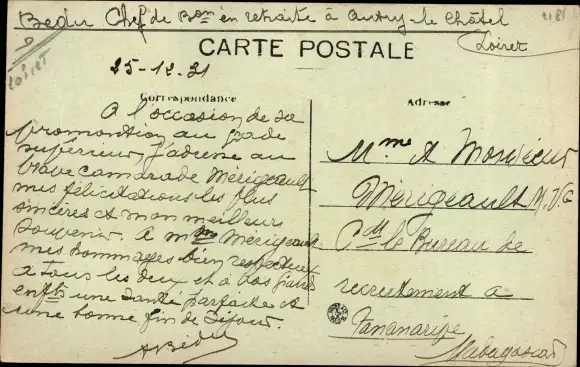 Bedu Chef de Bon en retraite à Autry-le-Châtel
Loiret
CARTE POSTALE
25-12.21
Correspondance
Adresse
A l'occasion de sa
promontion au grade
supérieur, j'adresse au
brave camarade Mérigeault
mes félicitations les plus
sincères et mon meilleurs
souvenir. A Mme Mérigeault
mes hommages bien respectueux
a tous les deux et à vos
enfts une santé parfaite et
une bonne fin de séjour.
ABedu
Mme & Monsieur
Mérigeault
Ct le Bureau de
recrutement a
Tananarive
Madagascar